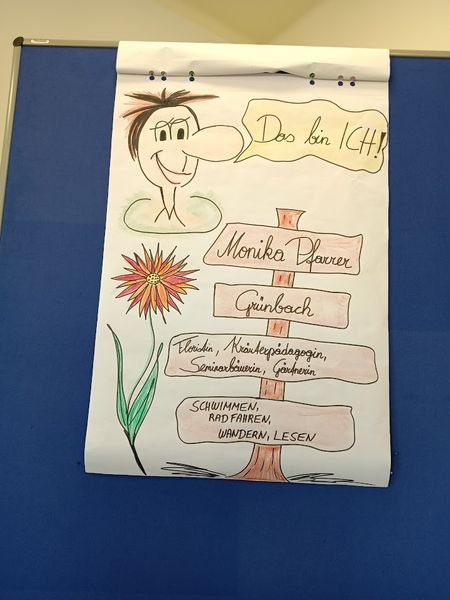 Das bin ICH!
Monika Pfarrer
Grünbach
Floristin, Kräuterpädagogin,
Seminarbäuerin, Gärtnerin
SCHWIMMEN,
RADFAHREN,
WANDERN, LESEN